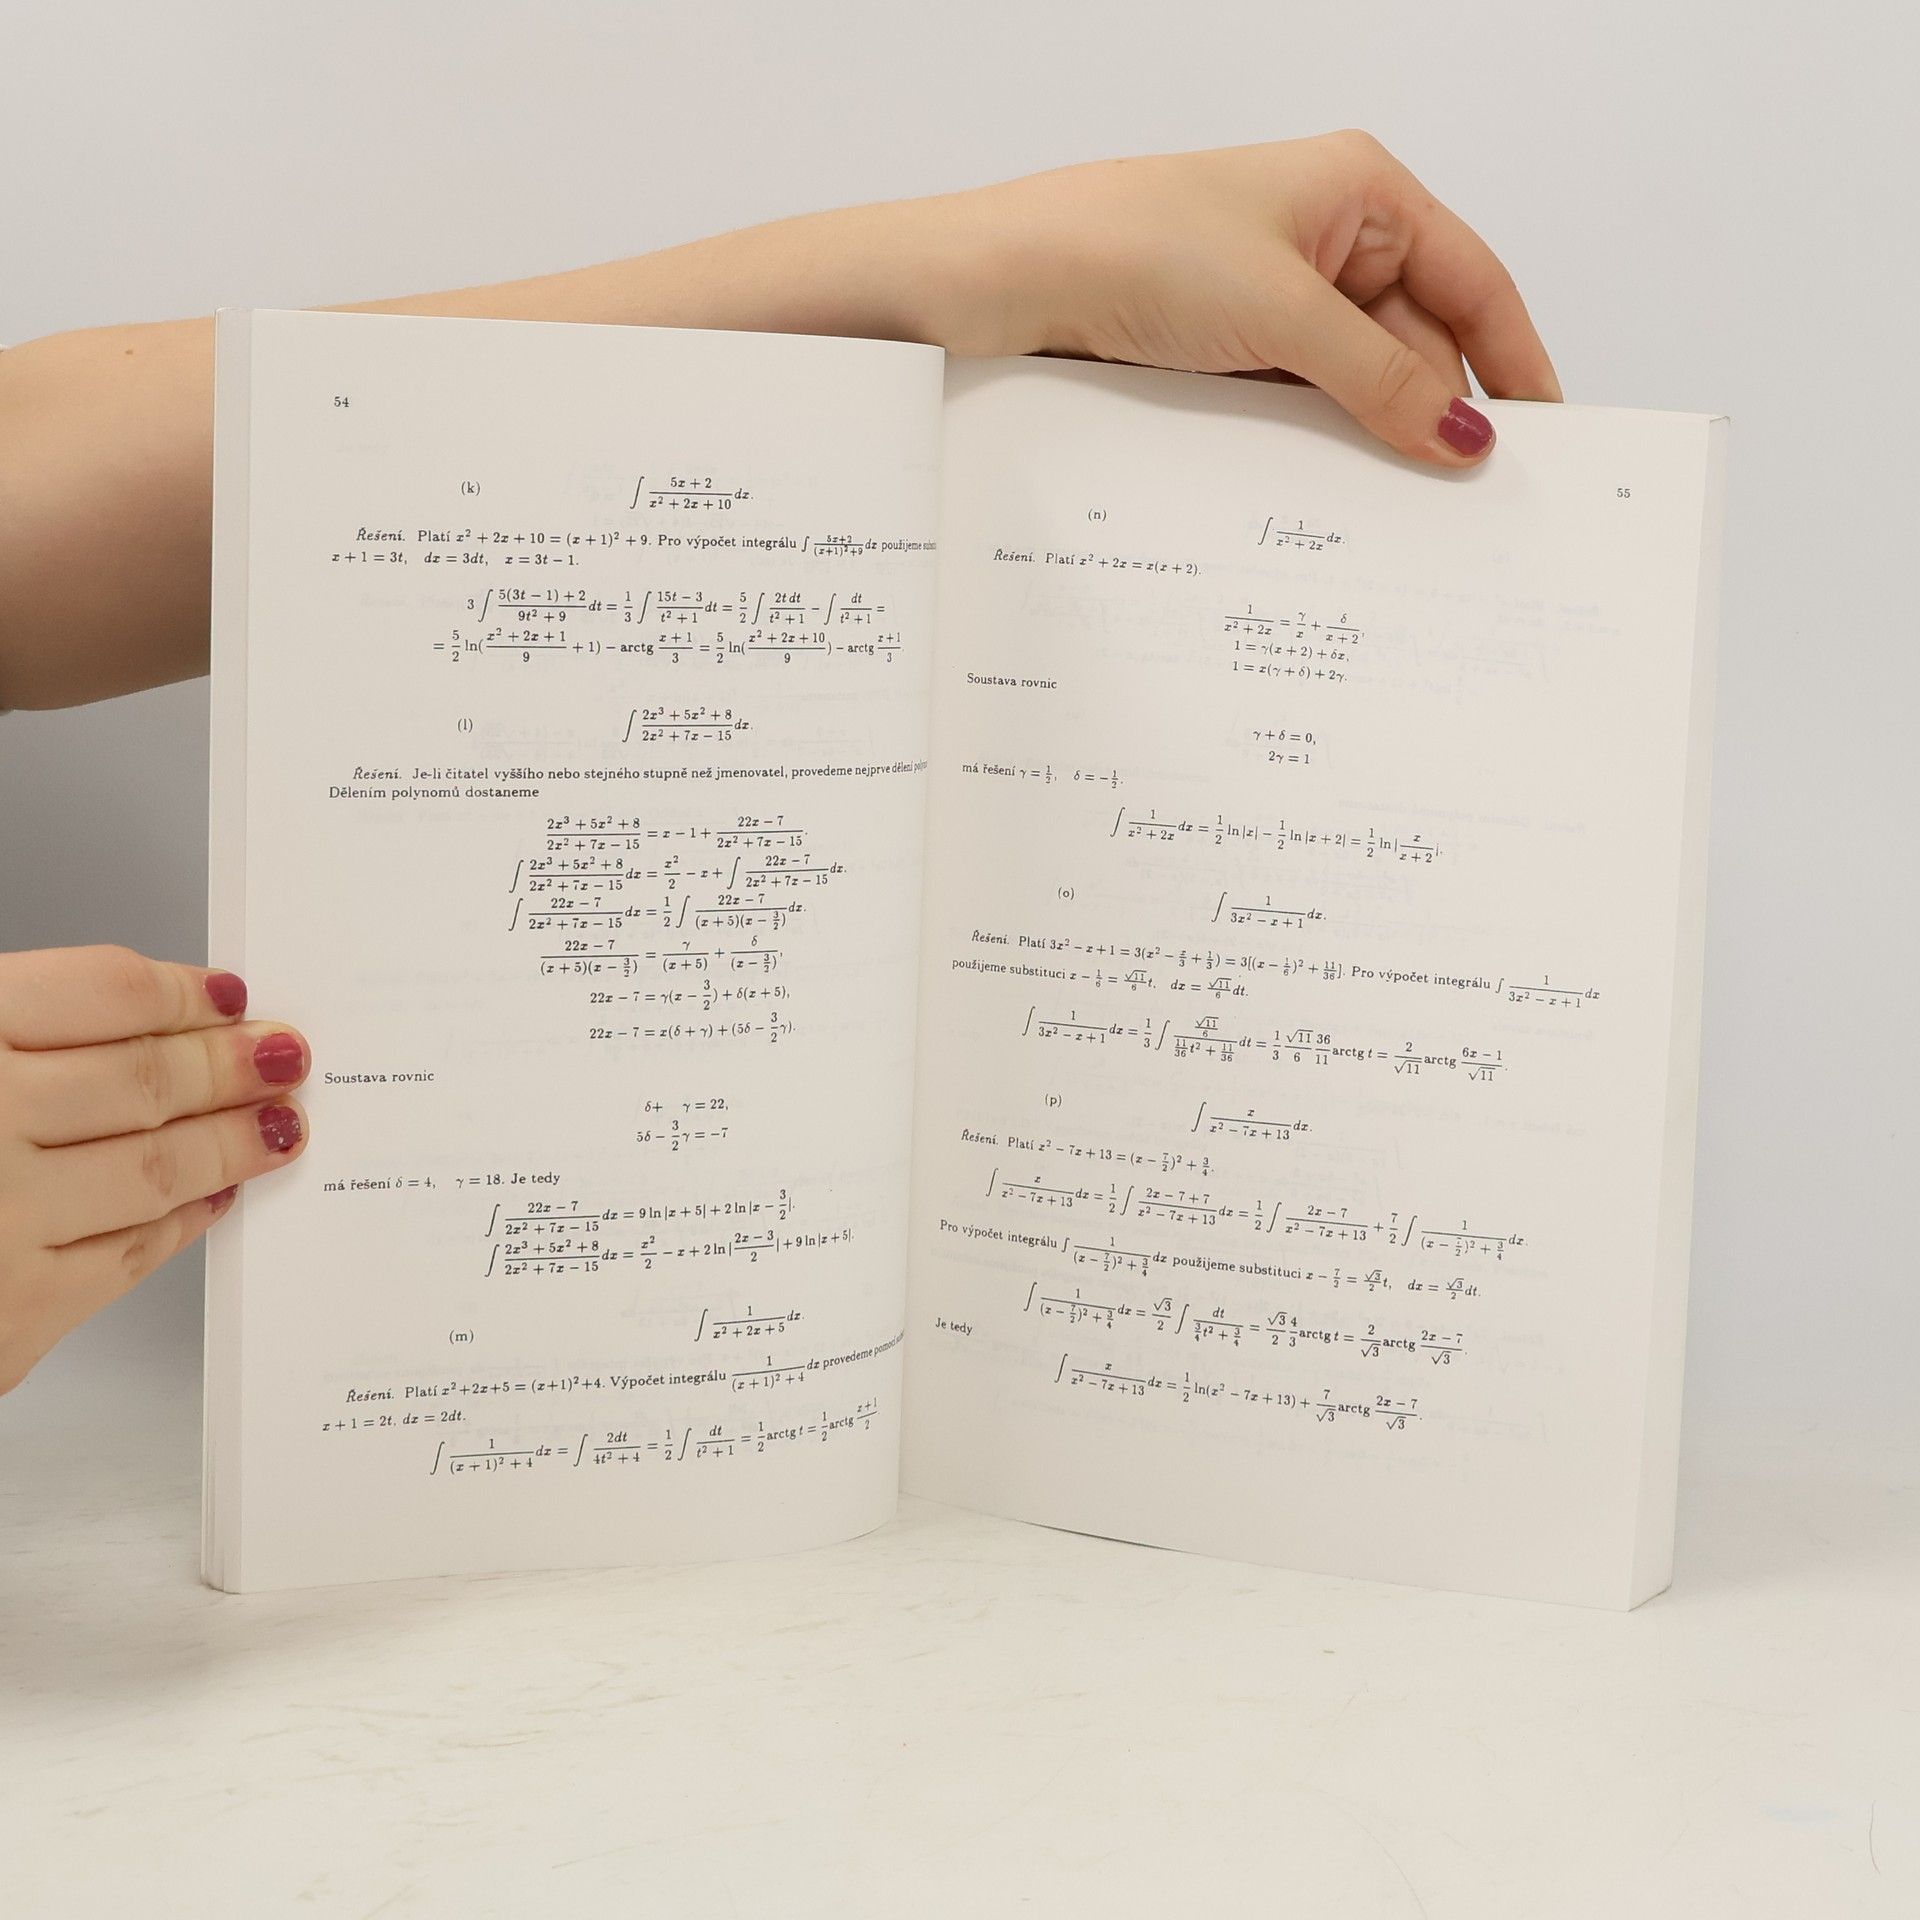 54
(k) ∫ (5x + 2)/(x² + 2x + 10) dx.
Řešení. Platí x² + 2x + 10 = (x + 1)² + 9. Pro výpočet integrálu ∫ (5x+2)/((x+1)²+9) dx použijeme
x + 1 = 3t, dx = 3dt, x = 3t − 1.
3 ∫ (5(3t − 1) + 2)/(9t² + 9) dt = 1/3 ∫ (15t − 3)/(t² + 1) dt = 5/2 ∫ (2t dt)/(t² + 1) − ∫ dt/(t² + 1) =
= 5/2 ln((x² + 2x + 1)/9 + 1) − arctg (x + 1)/3 = 5/2 ln((x² + 2x + 10)/9) − arctg (x+1)/3.
(l) ∫ (2x³ + 5x² + 8)/(2x² + 7x − 15) dx.
Řešení. Je-li čitatel vyššího nebo stejného stupně než jmenovatel, provedeme nejprve dělení
Dělením polynomů dostaneme
(2x³ + 5x² + 8)/(2x² + 7x − 15) = x − 1 + (22x − 7)/(2x² + 7x − 15).
∫ (2x³ + 5x² + 8)/(2x² + 7x − 15) dx = x²/2 − x + ∫ (22x − 7)/(2x² + 7x − 15) dx.
∫ (22x − 7)/(2x² + 7x − 15) dx = 1/2 ∫ (22x − 7)/((x + 5)(x − 3/2)) dx.
(22x − 7)/((x + 5)(x − 3/2)) = γ/(x + 5) + δ/(x − 3/2),
22x − 7 = γ(x − 3/2) + δ(x + 5),
22x − 7 = x(δ + γ) + (5δ − 3/2 γ).
Soustava rovnic
δ+ γ = 22,
5δ − 3/2 γ = −7
má řešení δ = 4, γ = 18. Je tedy
∫ (22x − 7)/(2x² + 7x − 15) dx = 9 ln |x + 5| + 2 ln |x − 3/2|.
∫ (2x³ + 5x² + 8)/(2x² + 7x − 15) dx = x²/2 − x + 2 ln |(2x − 3)/2| + 9 ln |x + 5|.
(m) ∫ 1/(x² + 2x + 5) dx.
Řešení. Platí x²+2x+5 = (x+1)²+4. Výpočet integrálu 1/((x + 1)² + 4) dx provedeme pomocí
x + 1 = 2t, dx = 2dt.
∫ 1/((x + 1)² + 4) dx = ∫ 2dt/(4t² + 4) = 1/2 ∫ dt/(t² + 1) = 1/2 arctg t = 1/2 arctg (x+1)/2
55
(n) ∫ 1/(x² + 2x) dx.
Řešení. Platí x² + 2x = x(x + 2).
1/(x² + 2x) = γ/x + δ/(x + 2),
1 = γ(x + 2) + δx,
1 = x(γ + δ) + 2γ.
Soustava rovnic
γ + δ = 0,
2γ = 1
má řešení γ = 1/2, δ = −1/2.
∫ 1/(x² + 2x) dx = 1/2 ln |x| − 1/2 ln |x + 2| = 1/2 ln |x/(x + 2)|.
(o) ∫ 1/(3x² − x + 1) dx.
Řešení. Platí 3x² − x + 1 = 3(x² − x/3 + 1/3) = 3[(x − 1/6)² + 11/36]. Pro výpočet integrálu ∫ 1/(3x² − x + 1) dx
použijeme substituci x − 1/6 = √11/6 t, dx = √11/6 dt.
∫ 1/(3x² − x + 1) dx = 1/3 ∫ (√11/6)/(11/36 t² + 11/36) dt = 1/3 √11/6 36/11 arctg t = 2/√11 arctg (6x − 1)/√11.
(p) ∫ x/(x² − 7x + 13) dx.
Řešení. Platí x² − 7x + 13 = (x − 7/2)² + 3/4.
∫ x/(x² − 7x + 13) dx = 1/2 ∫ (2x − 7 + 7)/(x² − 7x + 13) dx = 1/2 ∫ (2x − 7)/(x² − 7x + 13) + 7/2 ∫ 1/((x − 7/2)² + 3/4) dx.
Pro výpočet integrálu ∫ 1/((x − 7/2)² + 3/4) dx použijeme substituci x − 7/2 = √3/2 t, dx = √3/2 dt.
∫ 1/((x − 7/2)² + 3/4) dx = √3/2 ∫ dt/(3/4 t² + 3/4) = √3/2 4/3 arctg t = 2/√3 arctg (2x − 7)/√3.
Je tedy
∫ x/(x² − 7x + 13) dx = 1/2 ln(x² − 7x + 13) + 7/√3 arctg (2x − 7)/√3.